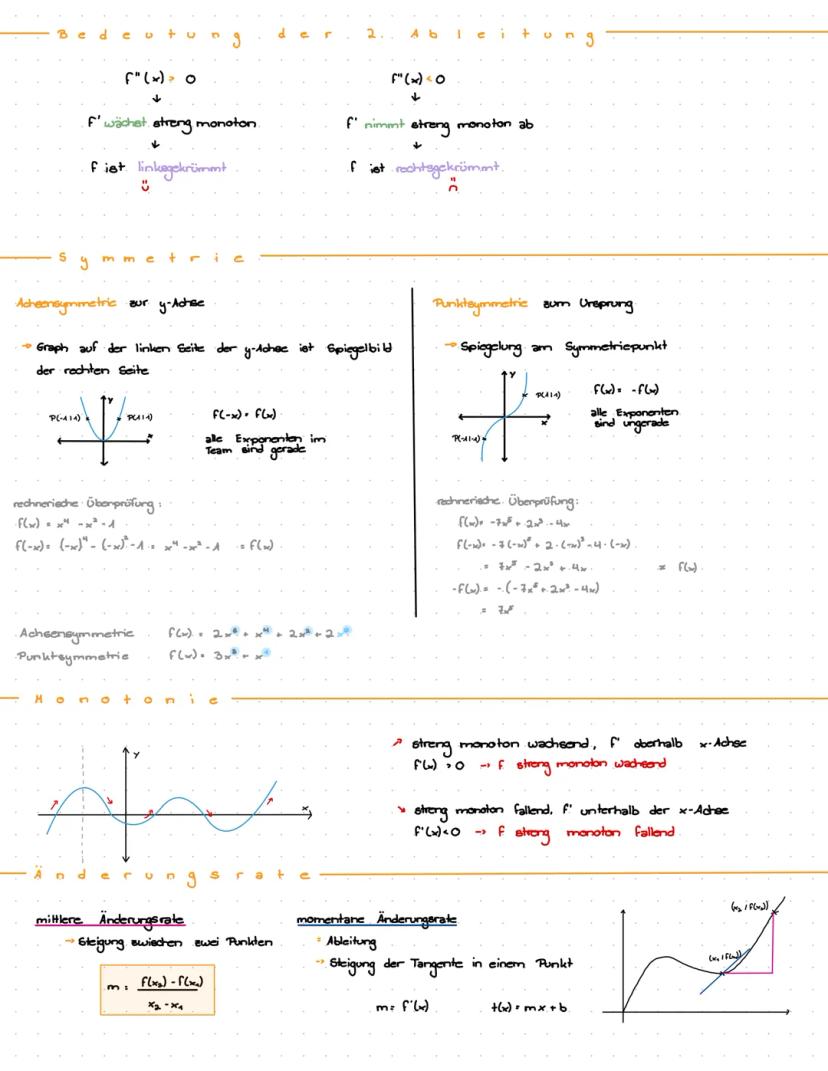 Bedeutung der 2. Ableitung
f"(x) > 0
↓
f' wächst streng monoton
↓
f ist linksgekrümmt
f"(x) < 0
↓
f' nimmt streng monoton ab
↓
f ist rechtsgekrümmt
Symmetrie
Achsensymmetrie zur y-Achse
→ Graph auf der linken Seite der y-Achse ist Spiegelbild
der rechten Seite
y
P(-1|1)
P(1|1)
x
f(-x) = f(x)
alle Exponenten im
Term sind gerade
rechnerische Überprüfung:
f(x) = x⁴ - x² - 1
f(-x) = (-x)⁴ - (-x)² - 1 = x⁴ - x² - 1 = f(x)
Punktsymmetrie zum Ursprung
→ Spiegelung am Symmetriepunkt
y
P(1|1)
x
P(-1|-1)
f(x) = -f(x)
alle Exponenten
sind ungerade
rechnerische Überprüfung:
f(x) = -7x⁵ + 2x³ - 4x
f(-x) = -7(-x)⁵ + 2·(-x)³ - 4·(-x)
= 7x⁵ - 2x³ + 4x = f(x)
-f(x) = -(-7x⁵ + 2x³ - 4x)
= 7x⁵
Achsensymmetrie f(x) = 2x⁶ + x⁴ + 2x² + 2x⁰
Punktsymmetrie f(x) = 3x³ - x¹
Monotonie
y
x
↗ streng monoton wachsend, f' oberhalb x-Achse
f'(x) > 0 → f streng monoton wachsend
↘ streng monoton fallend, f' unterhalb der x-Achse
f'(x) < 0 → f streng monoton fallend
Änderungsrate
mittlere Änderungsrate
→ Steigung zwischen zwei Punkten
m = f(x₂) - f(x₁)
x₂ - x₁
momentane Änderungsrate
= Ableitung
→ Steigung der Tangente in einem Punkt
m = f'(x) t(x) = mx + b
(x₂ / f(x₂))
(x₁ / f(x₁))